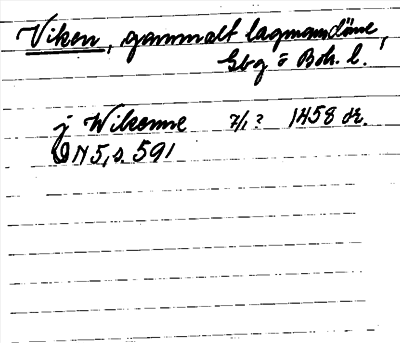 Viken, gammalt lagmansdöme,
Gbg o Boh. l.
j Wikenne 7/1? 1458 or.
DN 5, s. 591